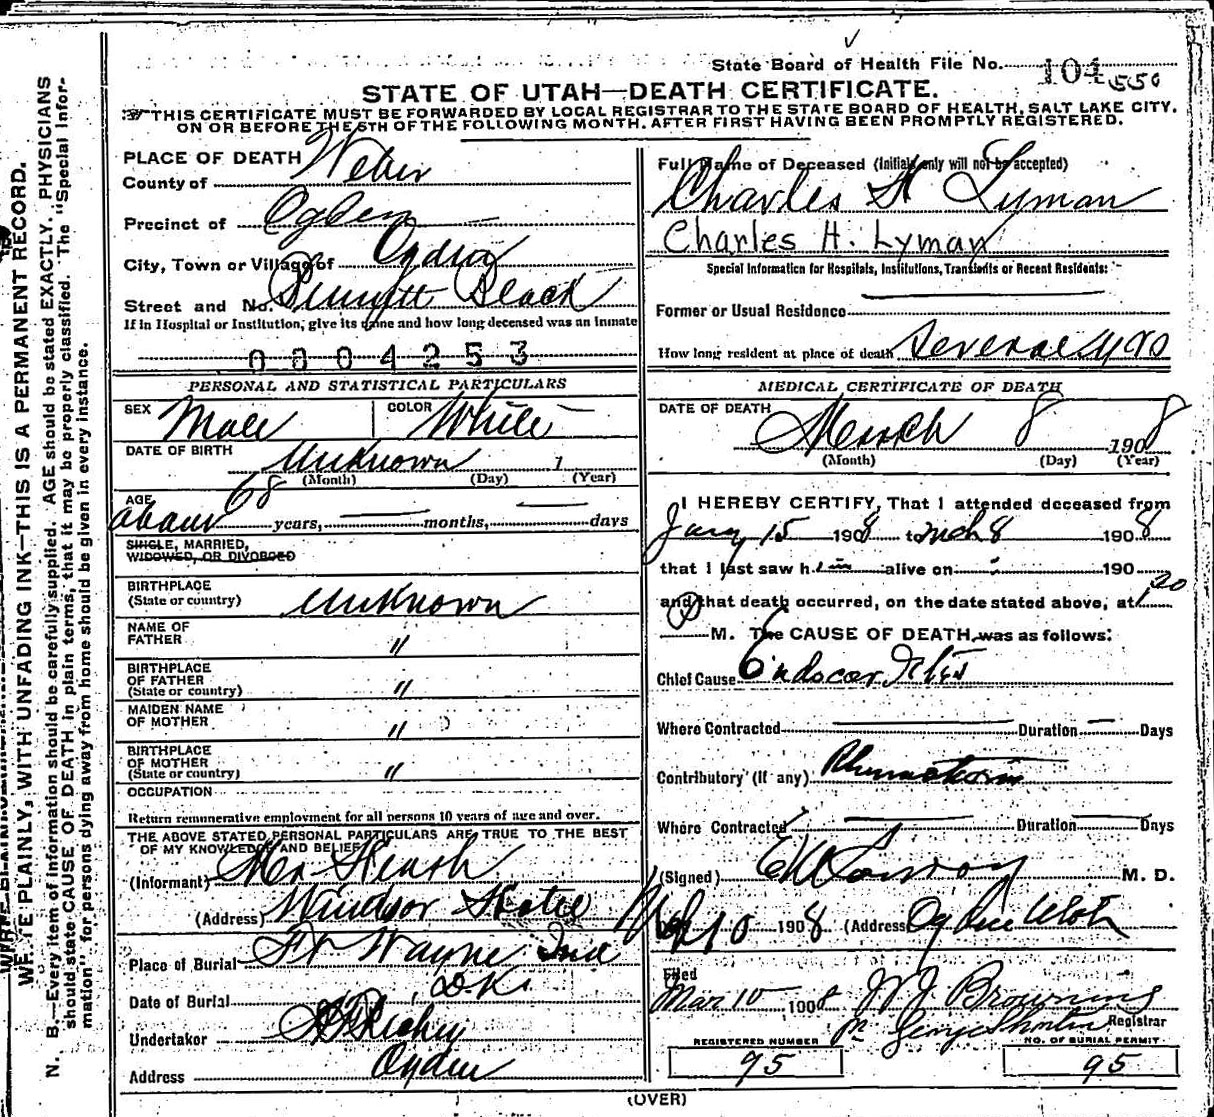 State Board of Health File No. 104 550
STATE OF UTAH—DEATH CERTIFICATE.
THIS CERTIFICATE MUST BE FORWARDED BY LOCAL REGISTRAR TO THE STATE BOARD OF HEALTH, SALT LAKE CITY.
ON OR BEFORE THE 5TH OF THE FOLLOWING MONTH, AFTER FIRST HAVING BEEN PROMPTLY REGISTERED.
WRITE PLAINLY, WITH UNFADING INK—THIS IS A PERMANENT RECORD.
N. B.—Every item of information should be carefully supplied. AGE should be stated EXACTLY. PHYSICIANS
should state CAUSE OF DEATH in plain terms, that it may be properly classified. The "Special Infor-
mation" for persons dying away from home should be given in every instance.
PLACE OF DEATH
County of Weber
Precinct of Ogden
City, Town or Village of Ogden
Street and No.
If in Hospital or Institution, give its name and how long deceased was an inmate
0804253
PERSONAL AND STATISTICAL PARTICULARS
SEX Male COLOR White
DATE OF BIRTH Unknown 1
(Month) (Day) (Year)
AGE
about 68 years, months, days
SINGLE, MARRIED,
WIDOWED, OR DIVORCED
BIRTHPLACE
(State or country) Unknown
NAME OF
FATHER "
BIRTHPLACE
OF FATHER
(State or country) "
MAIDEN NAME
OF MOTHER "
BIRTHPLACE
OF MOTHER
(State or country) "
OCCUPATION
Return remunerative employment for all persons 10 years of age and over.
THE ABOVE STATED PERSONAL PARTICULARS ARE TRUE TO THE BEST
OF MY KNOWLEDGE AND BELIEF
(Informant)
(Address) Windsor Hotel
Place of Burial Ft Wayne Ind
Date of Burial
Undertaker
Address Ogden
Full Name of Deceased (Initials only will not be accepted)
Charles H Lyman
Charles H. Lyman
Special Information for Hospitals, Institutions, Transients or Recent Residents:
Former or Usual Residence
How long resident at place of death Several yrs
MEDICAL CERTIFICATE OF DEATH
DATE OF DEATH
March 8 1908
(Month) (Day) (Year)
I HEREBY CERTIFY, That I attended deceased from
Jany 15 1908 to Mch 8 1908
that I last saw him alive on 190
and that death occurred, on the date stated above, at 1 20
P M. The CAUSE OF DEATH, was as follows:
Chief Cause Endocarditis
Where Contracted Duration Days
Contributory (If any) Rhumatism
Where Contracted Duration Days
(Signed) M. D.
Mch 10 1908 (Address) Ogden Utah
Filed
Mar 10 1908 Browning
Registrar
REGISTERED NUMBER
95
NO. OF BURIAL PERMIT
95
(OVER)